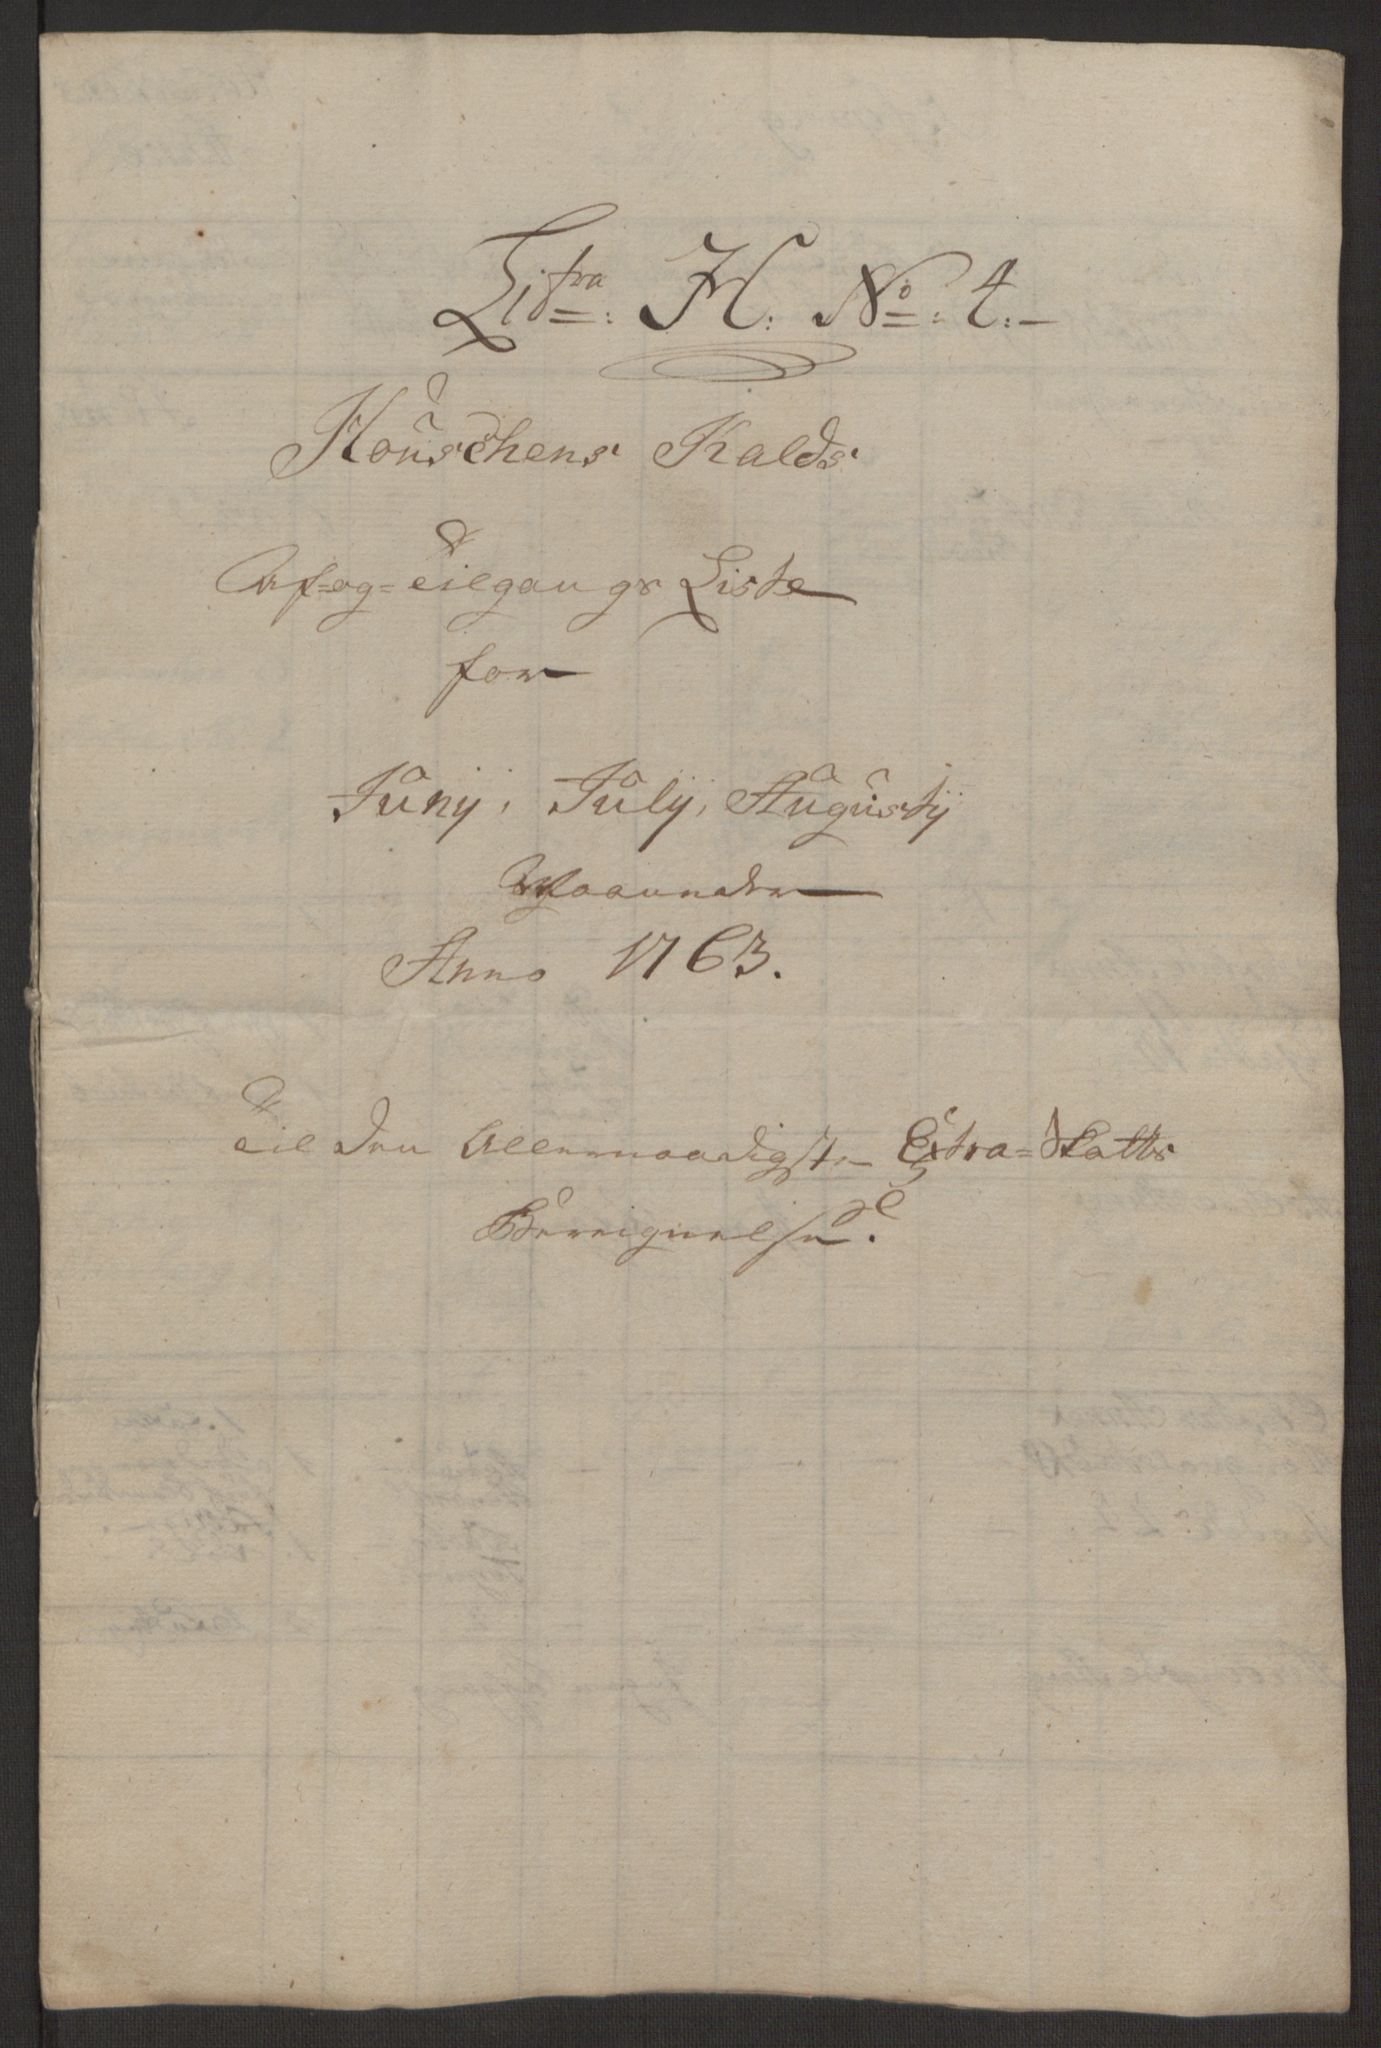 Litra: H: No: 4:
Kouschens Kalds
Af-og-Tilgangs Liste
for
Junij, Julij, Augustij
Maaneder
Anno 1763.
Til den Allernaadigste Extra-Skatts
Beregnelse.